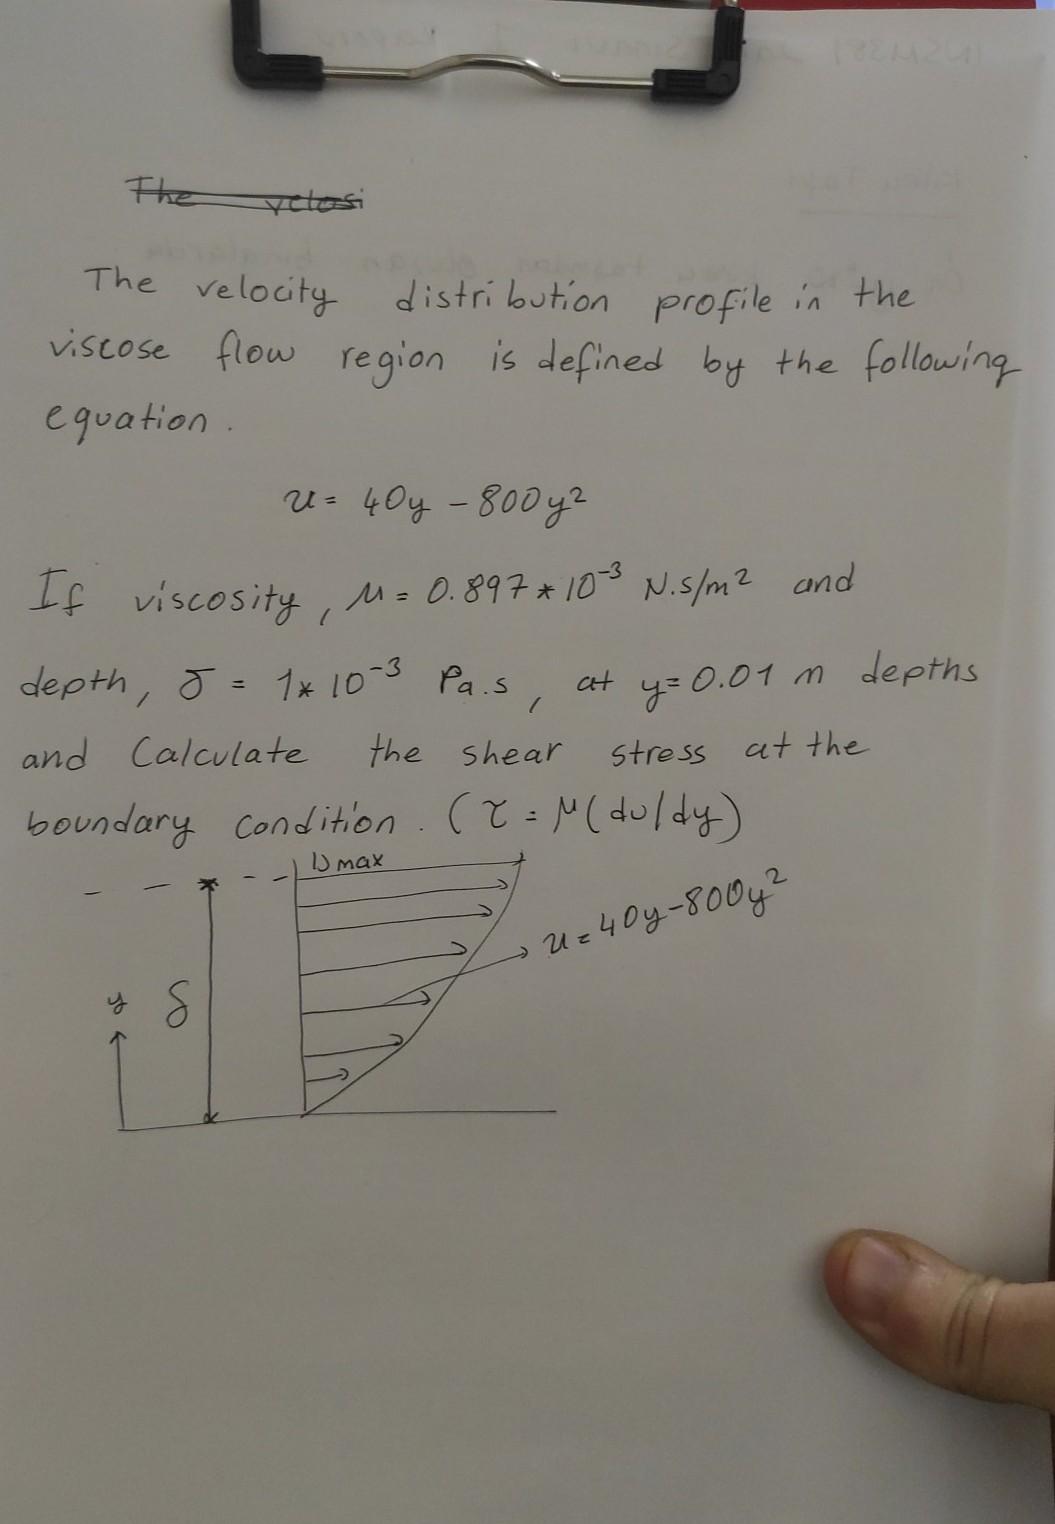 The velosi
The velocity distribution profile in the
viscose flow region is defined by the following
equation.
u = 40y - 800y²
If viscosity, μ = 0.897 * 10⁻³ N.s/m² and
depth, δ = 1 * 10⁻³ Pa.s, at y = 0.01 m depths
and Calculate the shear stress at the
boundary condition. (τ = μ(du/dy)
Umax
u = 40y - 800y²
y δ